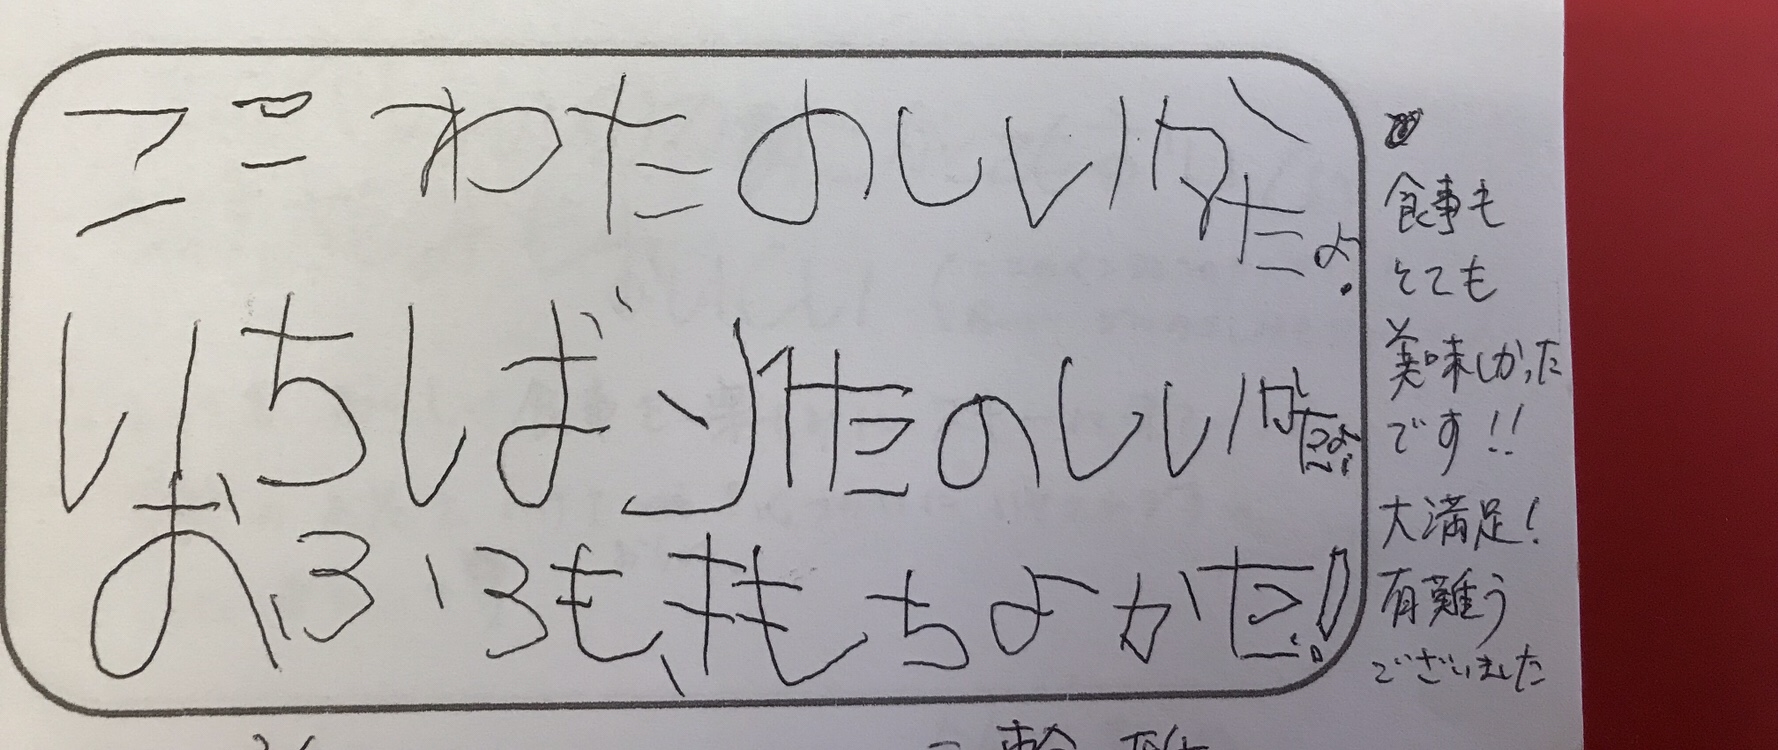 ここわたのしいかたよ。
いちしばンたのしいかたよ。
おふろも、きもちよかた。!
食事も
とても
美味しかった
です!!
大満足!
有難う
ございました